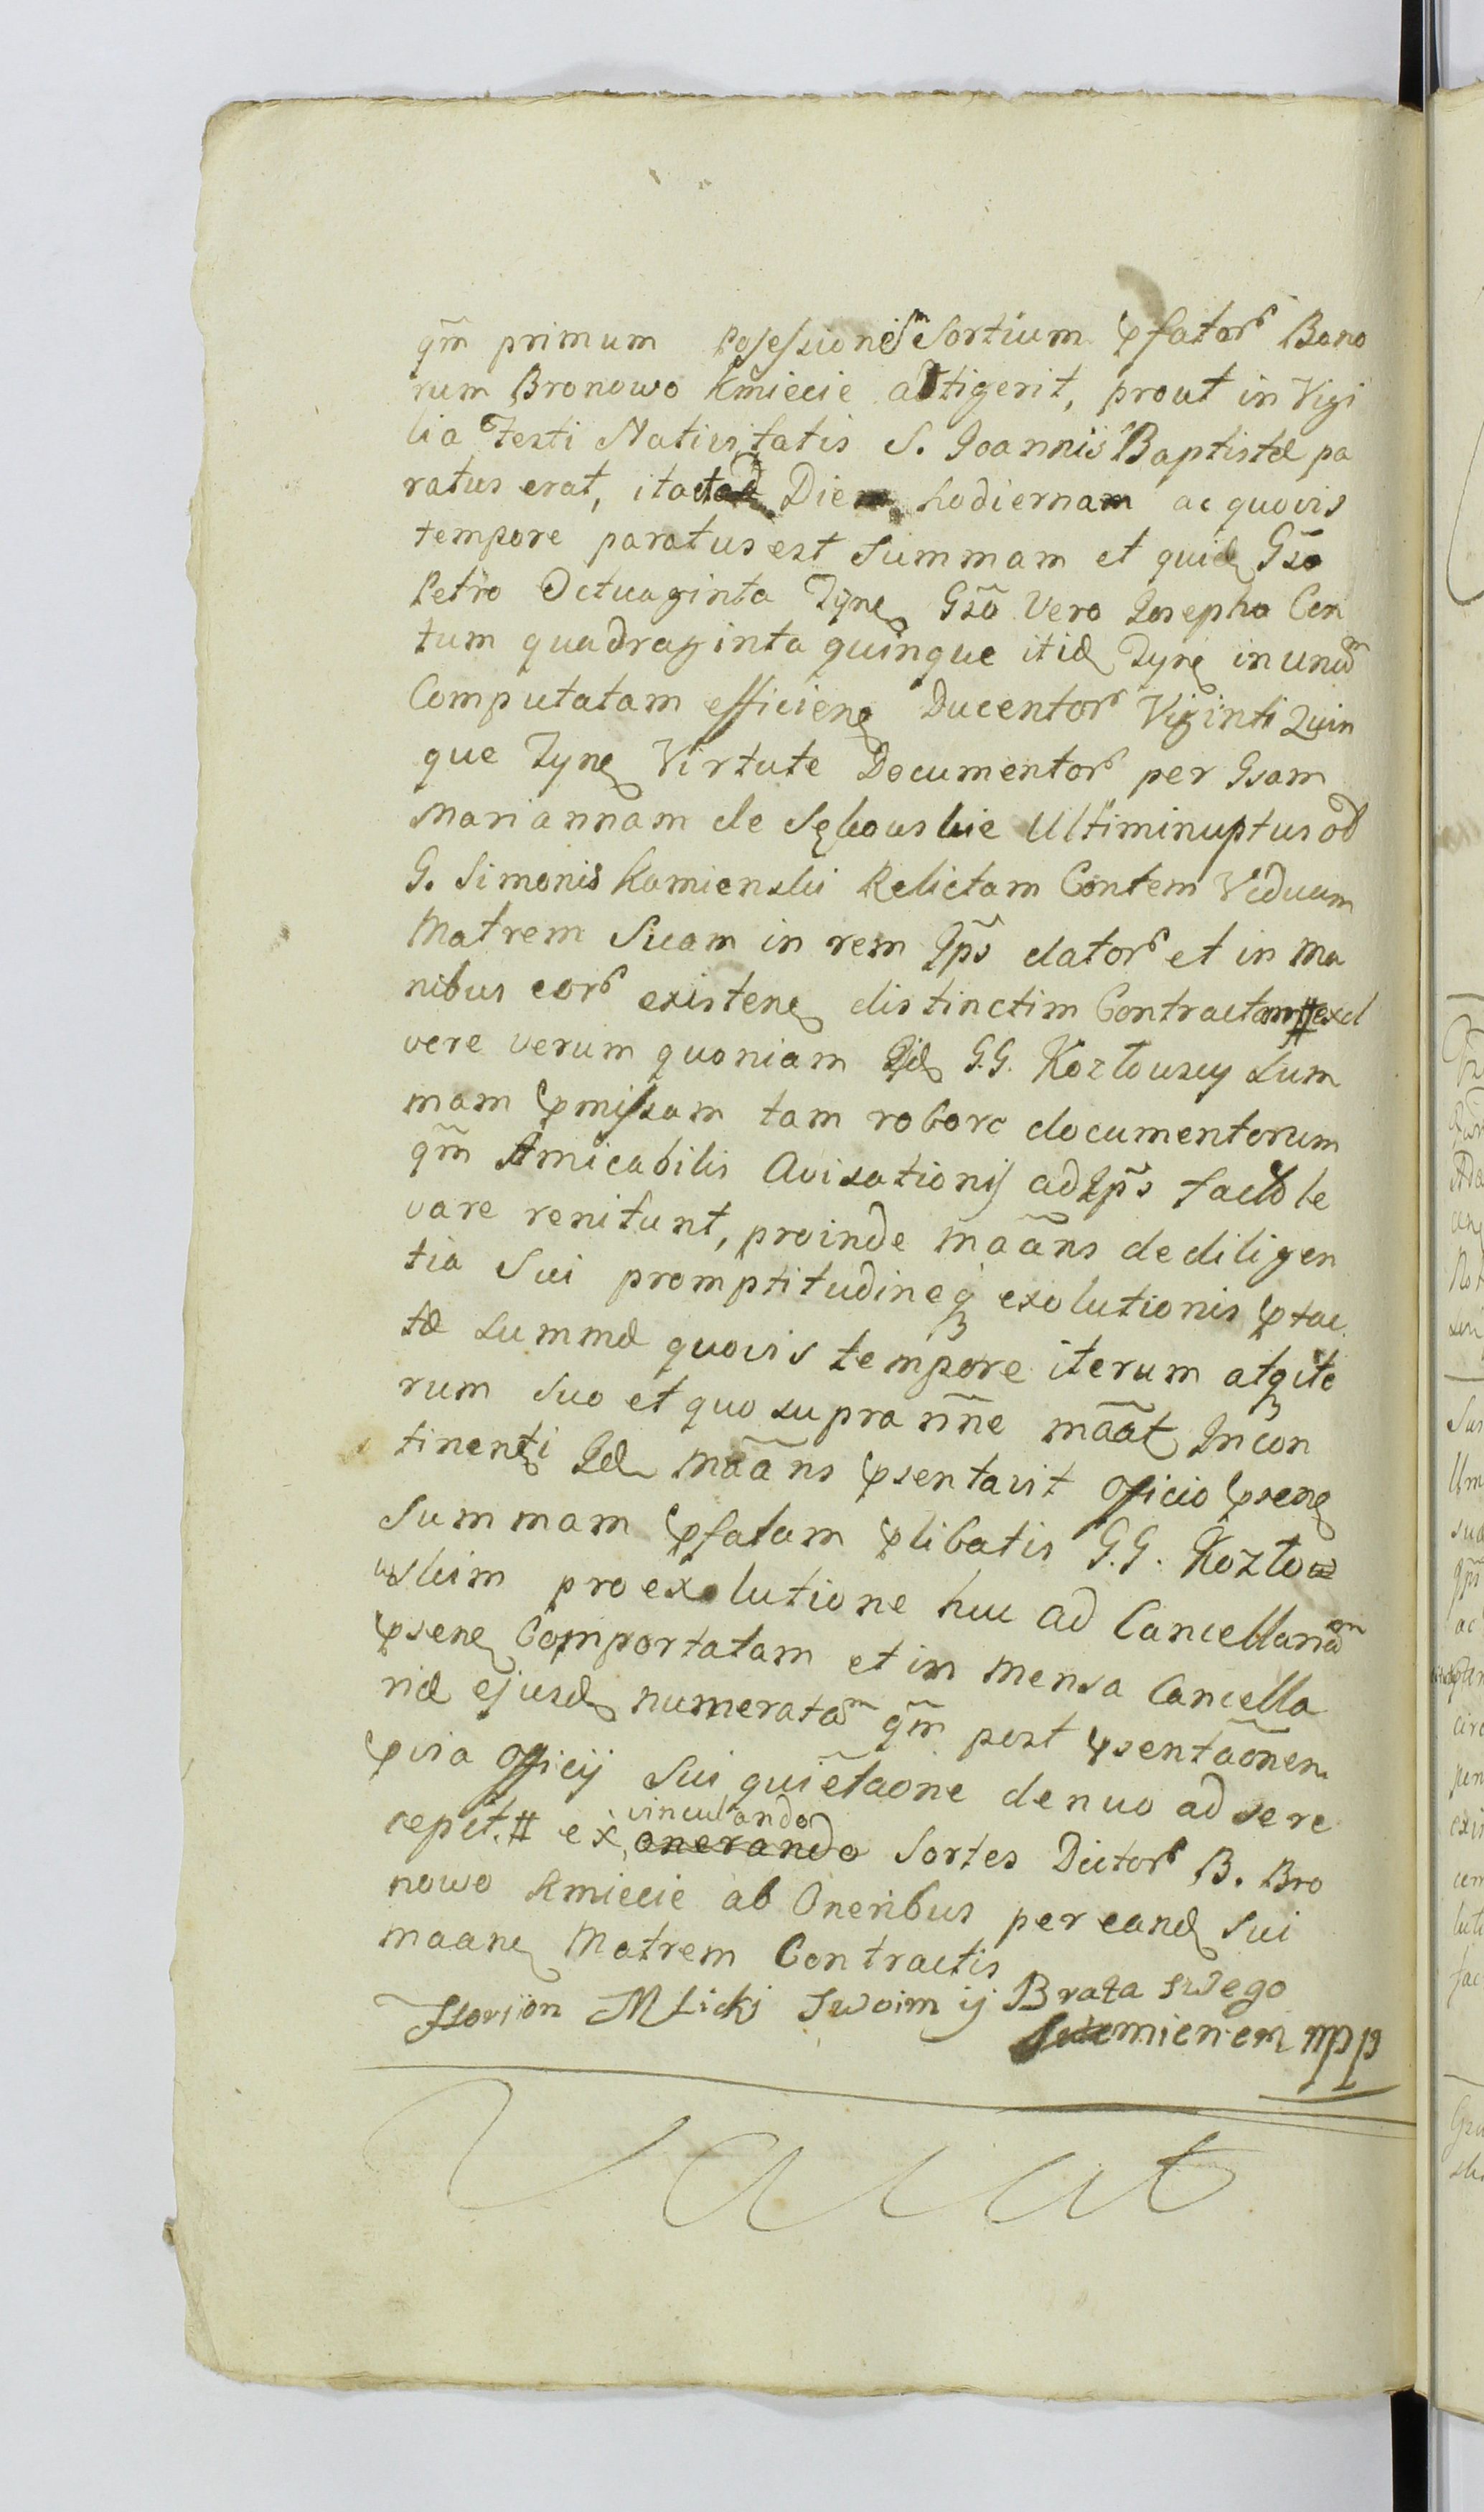 qm̃ primum Possessione͂ Sortium p̱fator̃ Bono
rum Bronowo Kmiecie attigerit, prout in Vigi
lia Festi Nativitatis S. Joannis Baptistæ pa
ratus erat, ita et ad Diem hodiernam ac quovis
tempore paratus est Summam et quid Gso͂
Petro Octuaginta Tyne Gso͂ Vero Josepho Cen
tum quadraginta quinque itid Tyne in una͂
Computatam efficiene Ducentor̃ Viginti Quin
que Tyne Virtute Documentor̃ per Gsam
Mariannam de Sękowskie Ultimi nuptus od
G. Simonis Kamienski Relictam Contem Viduam
Matrem Suam in rem Ips͂ dator̃ et in Ma
nibus eor̃ existene distinctim Contractam # exol
vere verum quoniam Iid G.G. Kozłowscy Sum
mam p̱missam tam robore documentorum
qm̃ Amicabilis Avisationis ad Ips͂ facto le
vare renitunt, proinde ma͂ans de diligen
tia Sui promptitudineq̃ exolutionis p̱tac
tæ Summæ quovis tempore iterum atq̃ ite
rum suo et quo supra nn͂e ma͂at Incon
tinenti Id ma͂ans p̱sentavit Officio p̱sene
Summam p̱fatam p̱libatis G.G. Kozło
wskim pro exolutione huc ad Cancellaria͂m
p̱sene Comportatam et in Mensa Cancella
riæ ejusd numerata͂m qm̃ post p̱sentao͂nem
p̱via Officij Sui quieta͂one denuo ad se re
cepit. # ex vinculando onerando Sortes Dictor̃ B. Bro
nowo Kmiecie ab Oneribus per eand Sui
maane Matrem Contractis
Florijon Mlicki Swoim ij Brata swego
Jemieniem mpp
Vacat